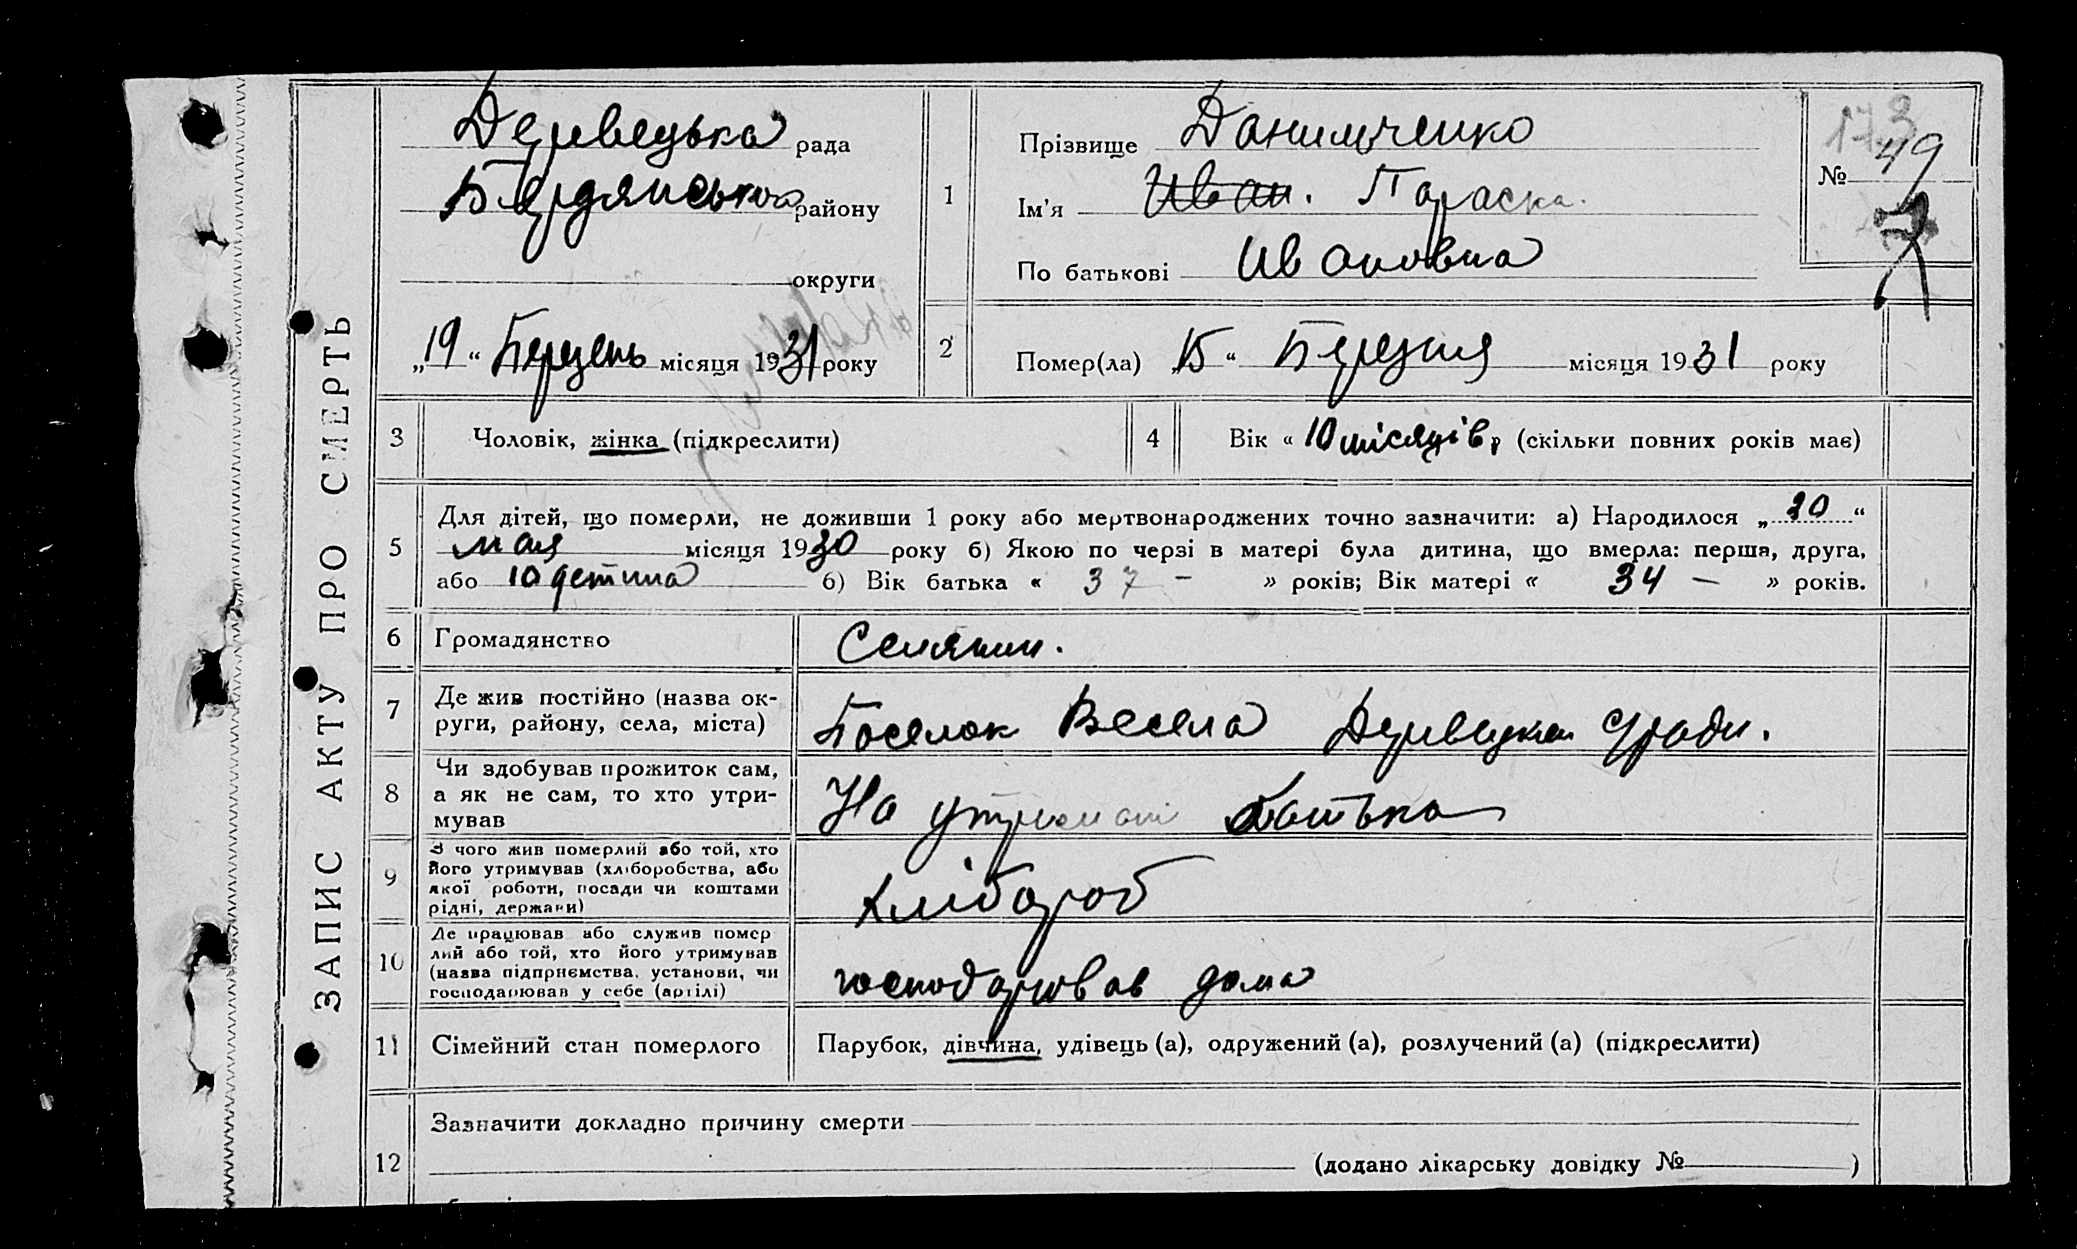 ЗАПИС АКТУ ПРО СМЕРТЬ
Деревецька рада
Бердянського району
округи
„19“ Березень місяця 1931 року
1
Прізвище Данильченко
Ім'я Иван. Параска.
По батькові Ивановна
№ 49
173
2
Помер(ла) „15“ Березня місяця 1931 року
3 Чоловік, жінка (підкреслити)
4 Вік «10 місяців» (скільки повних років має)
Для дітей, що померли, не доживши 1 року або мертвонароджених точно зазначити: а) Народилося „20“
5 мая місяця 1930 року б) Якою по черзі в матері була дитина, що вмерла: перша, друга,
або 10 детина б) Вік батька « 37 – » років; Вік матері « 34 – » років.
6 Громадянство Селянин.
7 Де жив постійно (назва ок-
руги, району, села, міста) Поселок Весела
8 Чи здобував прожиток сам,
а як не сам, то хто утри-
мував На утримані батька
9 З чого жив померлий або той, хто
його утримував (хліборобства, або
якої роботи, посади чи коштами
рідні, держави) хлібороб
10 Де працював або служив помер
лий або той, хто його утримував
(назва підприємства, установи, чи
господарював у себе (артілі) господарював дома
11 Сімейний стан померлого Парубок, дівчина, удівець (а), одружений (а), розлучений (а) (підкреслити)
Зазначити докладно причину смерти
12 (додано лікарську довідку № )